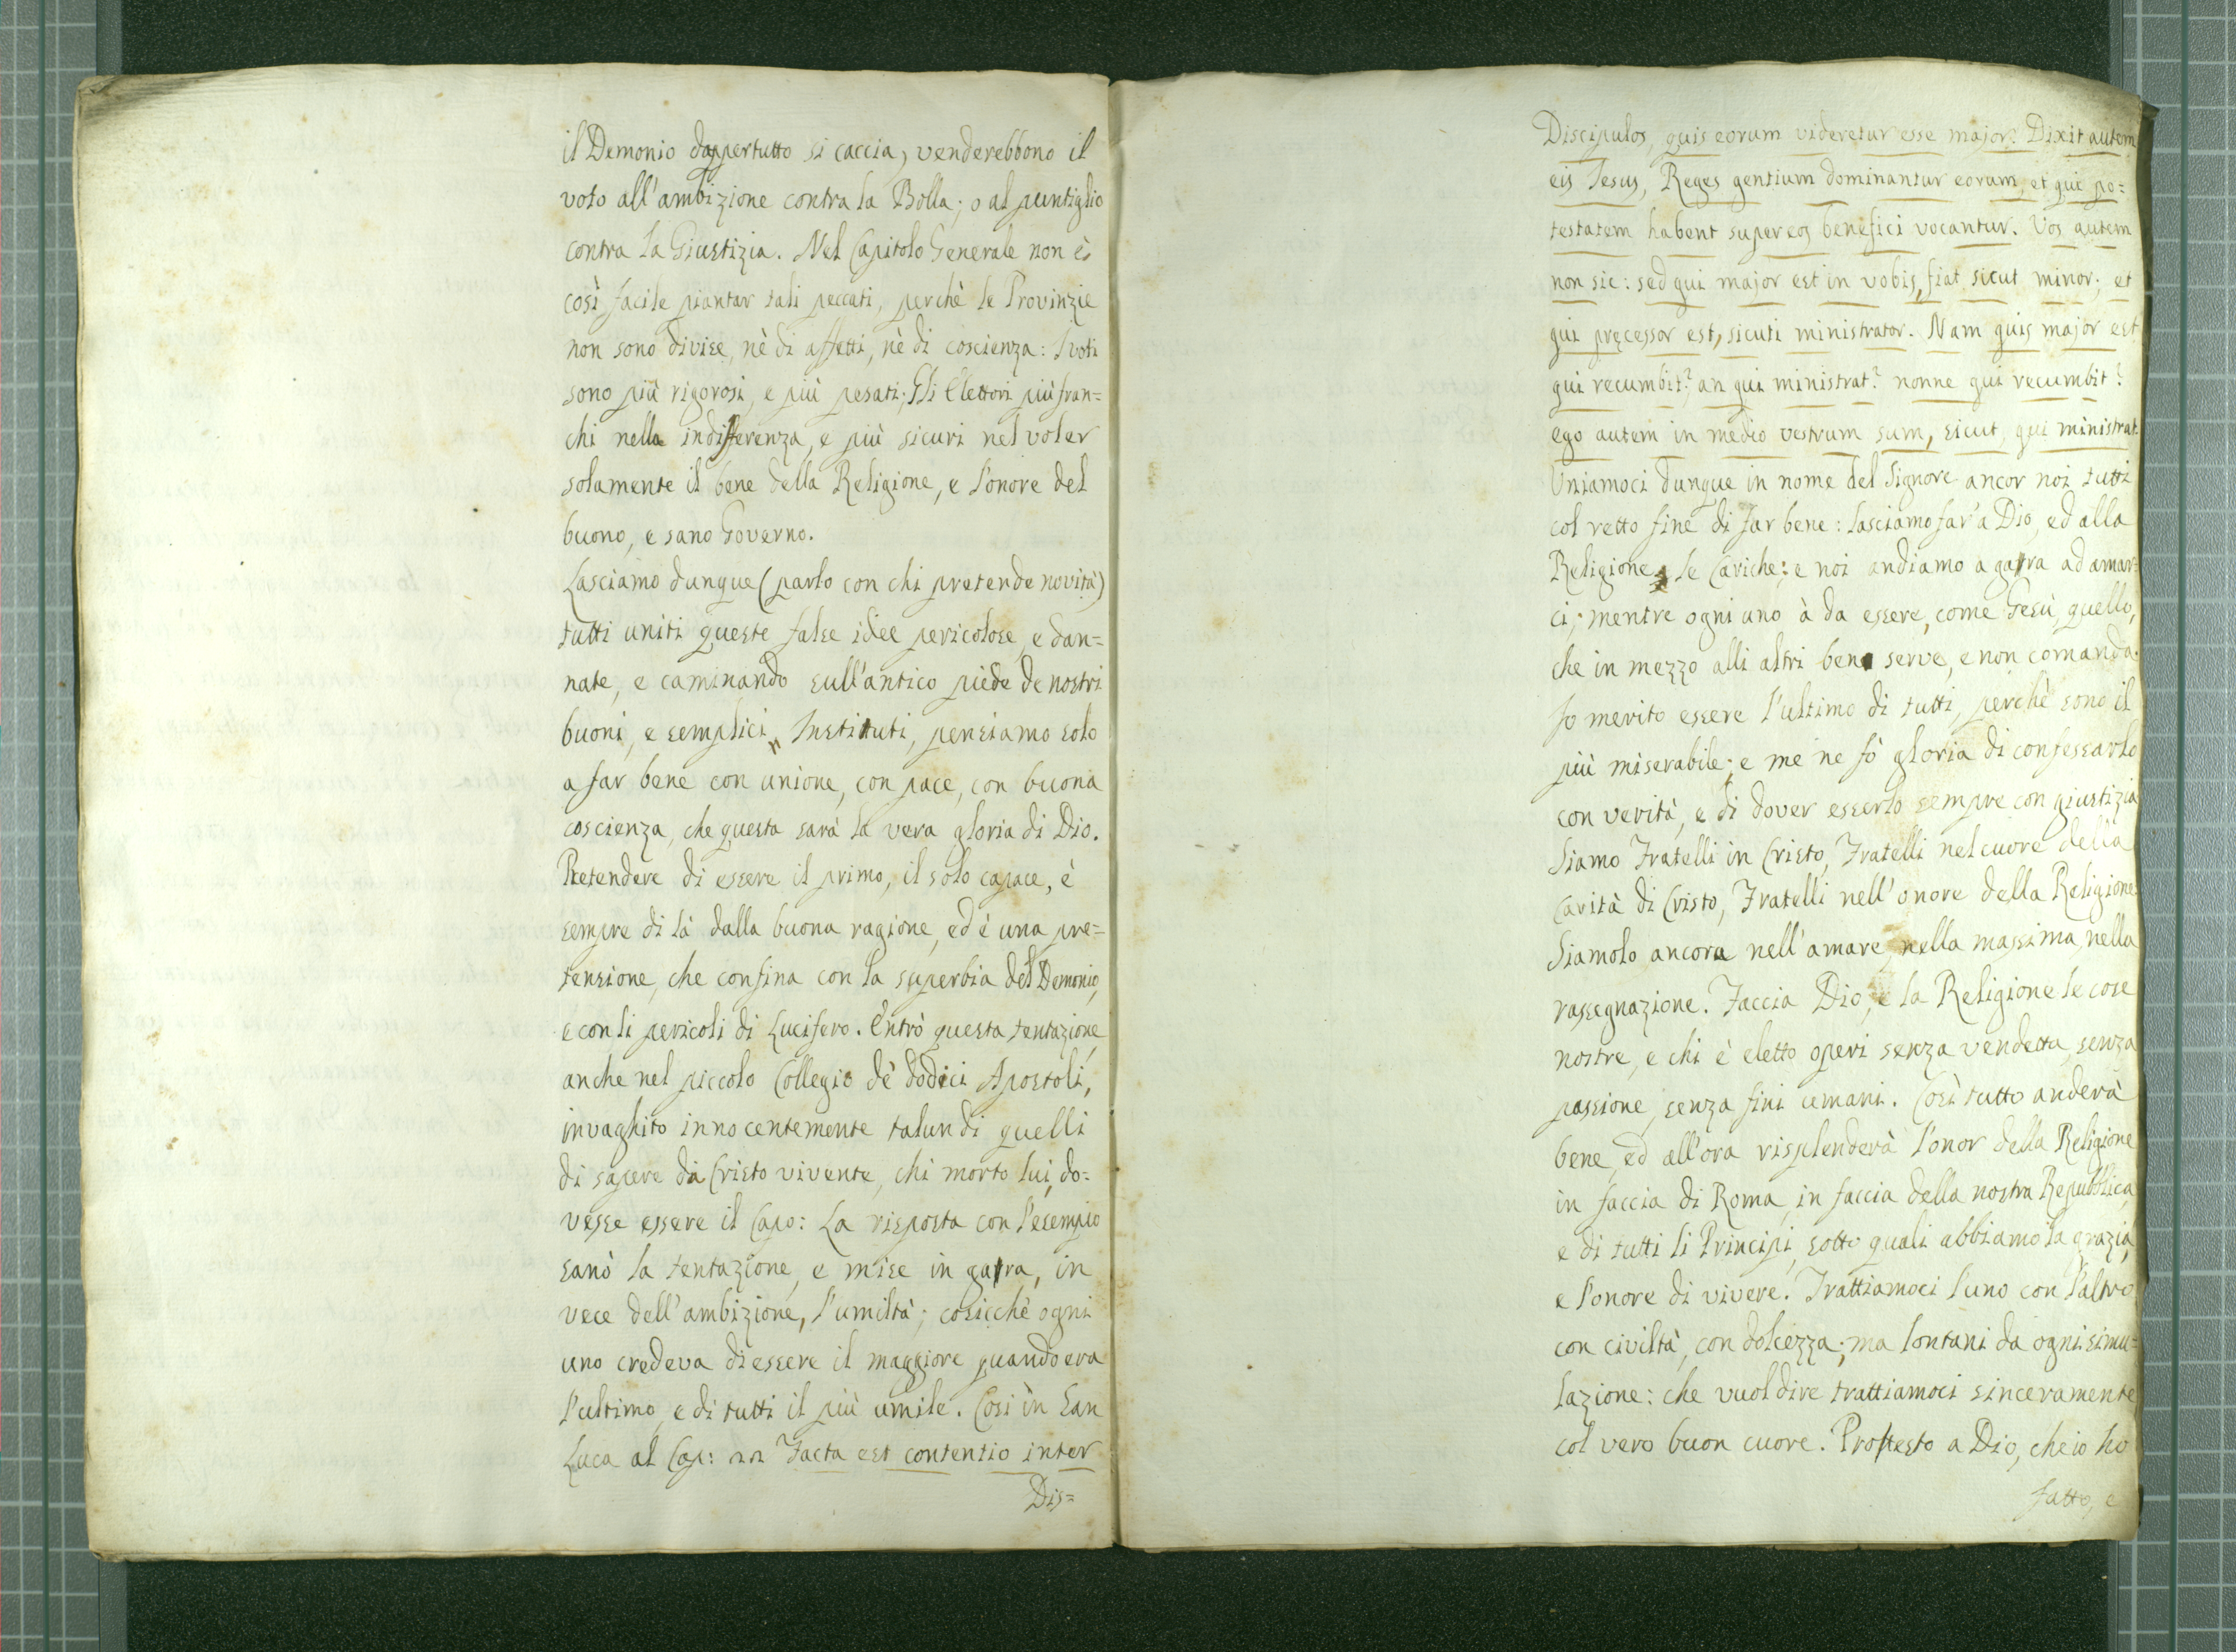 il Demonio dappertutto si caccia, venderebbono il
voto all'ambizione contra la Bolla; o al puntiglio
contra la Giustizia. Nel Capitolo Generale non è
così facile piantar tali peccati, perchè le Provinzie
non sono divise, nè di affetti, nè di coscienza: I voti
sono più rigorosi, e più pesati; Gli Elettori più fran=
chi nella indifferenza, e più sicuri nel voler
solamente il bene della Religione, e l'onore del
buono, e sano Governo.
Lasciamo dunque (parlo con chi pretende novità)
tutti uniti queste false idee pericolose, e dan=
nate, e caminando sull'antico piede de nostri
buoni, e semplici Instituti, pensiamo solo
a far bene con unione, con pace, con buona
coscienza, che questa sarà la vera gloria di Dio.
Pretendere di essere il primo, il solo capace, è
sempre di là dalla buona ragione, ed è una pre=
tensione, che confina con la superbia del Demonio,
e con li pericoli di Lucifero. Entrò questa tentazione
anche nel piccolo Collegio dè dodici Apostoli,
invaghito innocentemente talun di quelli
di sapere da Cristo vivente, chi morto lui, do=
vesse essere il Capo: La risposta con l'esempio
sanò la tentazione, e mise in gara, in
vece dell'ambizione, l'umiltà; cosicchè ogni
uno credeva di essere il maggiore quando era
l'ultimo, e di tutti il più umile. Così in San
Luca al Cap: 22 Facta est contentio inter
Dis=
Discipulos, quis eorum videretur esse major? Dixit autem
eis Jesus, Reges gentium dominantur eorum, et qui po=
testatem habent super eos benefici vocantur. Vos autem
non sic: sed qui major est in vobis, fiat sicut minor; et
qui pręcessor est, sicuti ministrator. Nam quis major est
qui recumbit? an qui ministrat? nonne qui recumbit?
ego autem in medio vestrum sum, sicut, qui ministrat.
Uniamoci dunque in nome del Signore ancor noi tutti
col retto fine di far bene: lasciamo far'a Dio, ed alla
Religione le Cariche: e noi andiamo a gara ad amar=
ci; mentre ogni uno à da essere, come Gesù, quello,
che in mezzo alli altri ben serve, e non comanda.
Io merito essere l'ultimo di tutti, perchè sono il
più miserabile; e me ne fò gloria di confessarlo
con verità, e di dover esserlo sempre con giustizia
Siamo Fratelli in Cristo, Fratelli nel cuore della
Carità di Cristo, Fratelli nell'onore della Religione:
Siamolo ancora nell'amare, nella massima, nella
rassegnazione. Faccia Dio, e la Religione le cose
nostre, e chi è eletto operi senza vendetta, senza
passione, senza fini umani. Così tutto anderà
bene, ed all'ora risplenderà l'onor della Religione
in faccia di Roma, in faccia della nostra Repubblica,
e di tutti li Principi, sotto quali abbiamo la grazia,
e l'onore di vivere. Trattiamoci l'uno con l'altro
con civiltà, con dolcezza; ma lontani da ogni simu=
lazione: che vuol dire trattiamoci sinceramente
col vero buon cuore. Protesto a Dio, che io ho
fatto, e